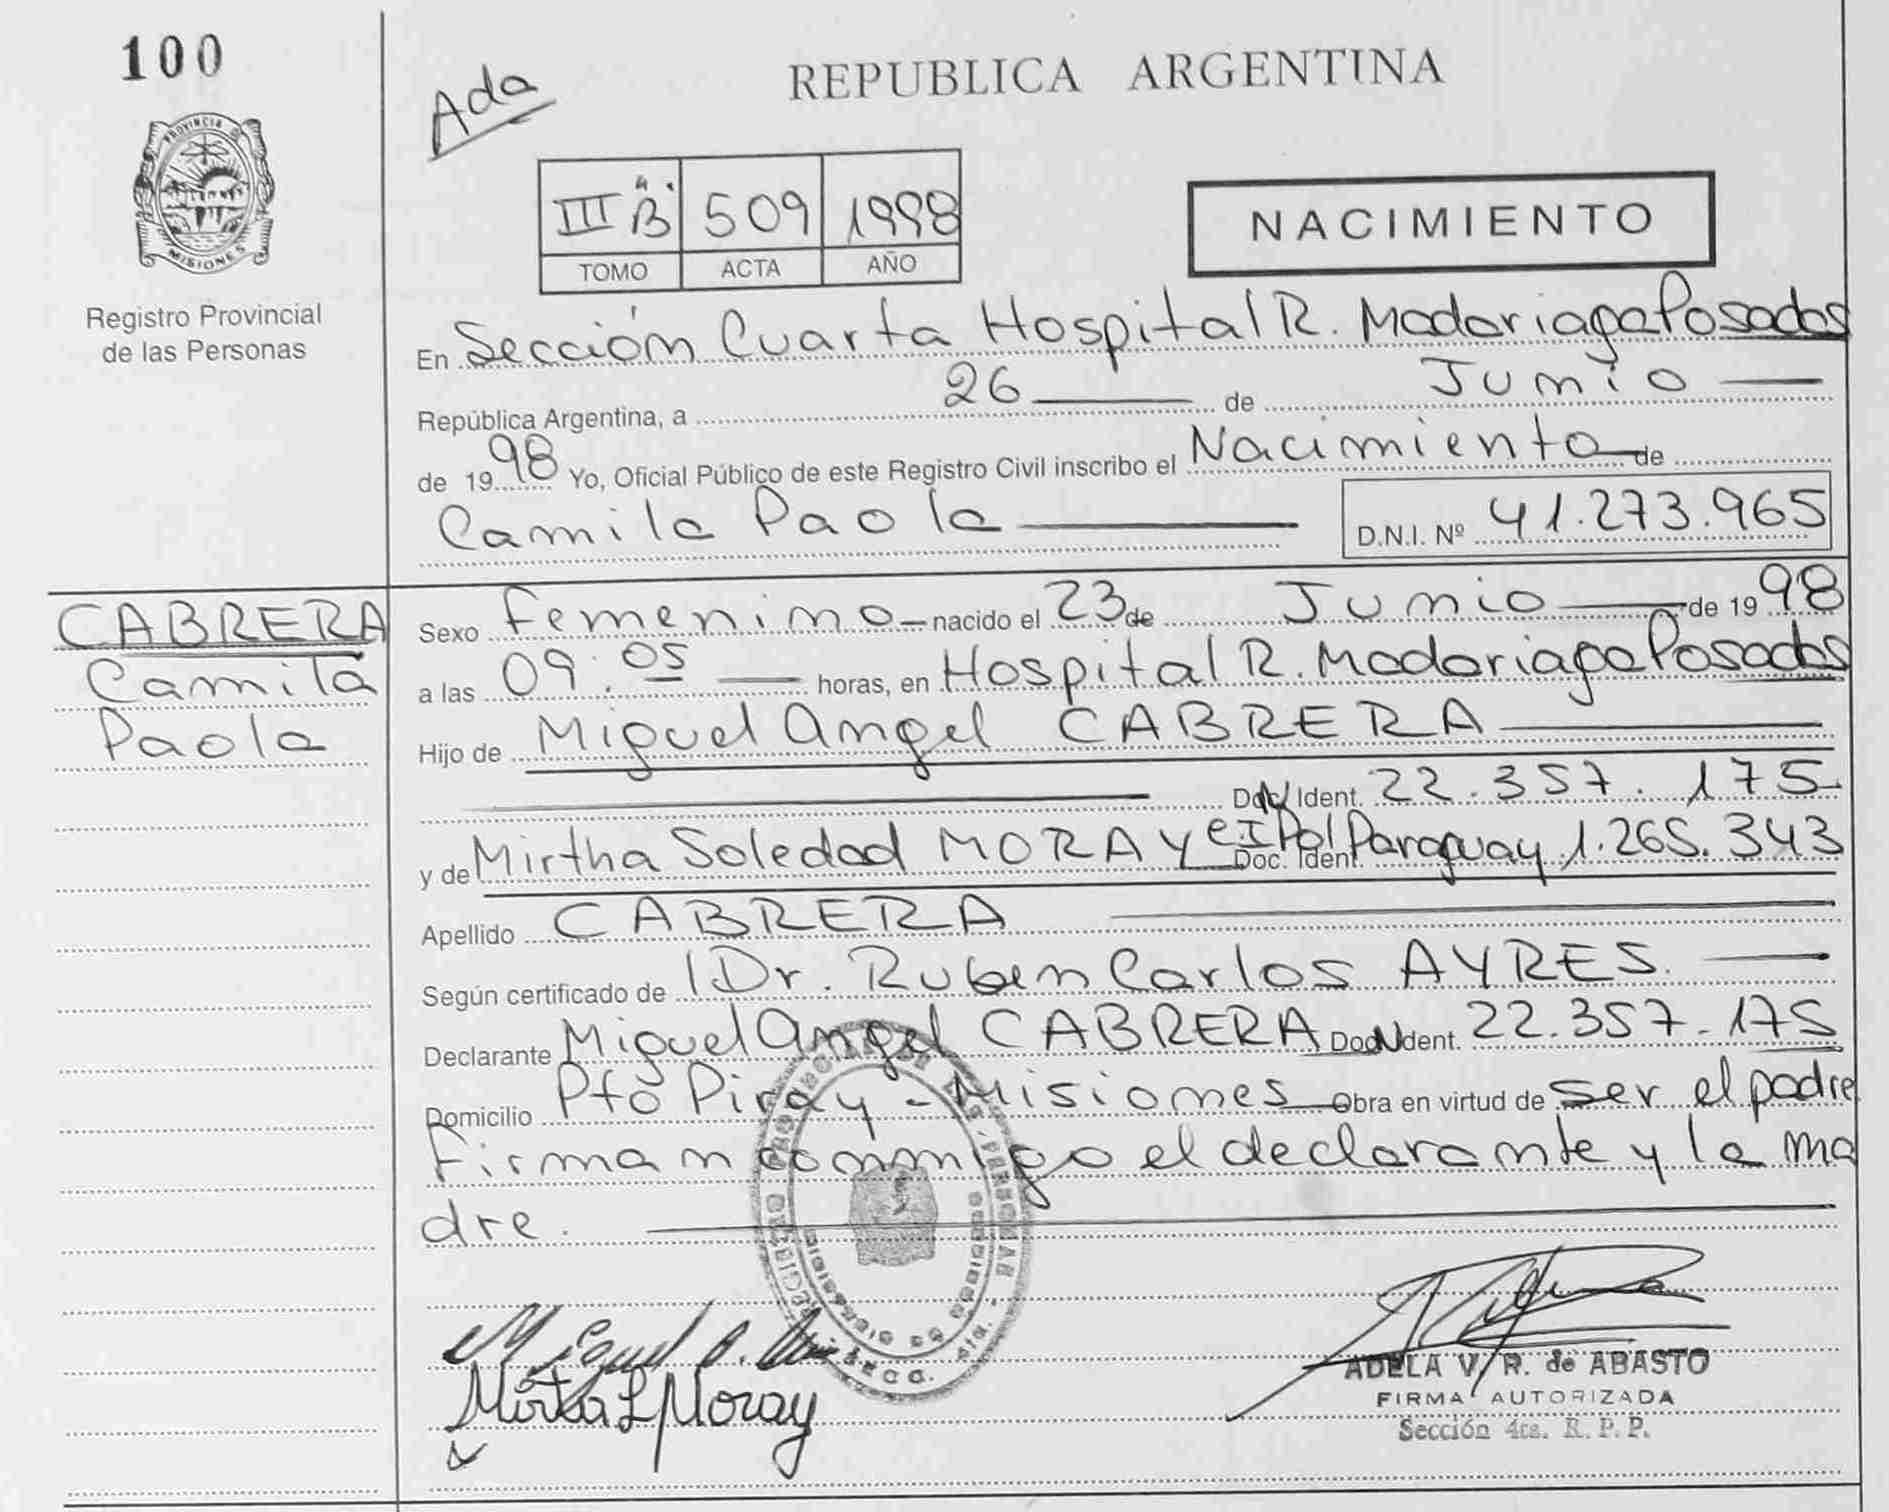 100
Ada
REPUBLICA ARGENTINA
PROVINCIA DE
MISIONES
III B 509 1998
TOMO ACTA AÑO
NACIMIENTO
Registro Provincial
de las Personas
En Sección Cuarta Hospital R. Madariaga Posadas
República Argentina, a 26 de Junio
de 1998 Yo, Oficial Público de este Registro Civil inscribo el Nacimiento de
Camila Paola D.N.I. Nº 41.273.965
CABRERA
Camila
Paola
Sexo Femenino nacido el 23 de Junio de 1998
a las 09:05 horas, en Hospital R. Madariaga Posadas
Hijo de Miguel Angel CABRERA
Doc. Ident. 22.357.175
y de Mirtha Soledad MORAY Doc. Ident. CI Pol Paraguay 1.265.343
Apellido CABRERA
Según certificado de Dr. Ruben Carlos AYRES.
Declarante Miguel Angel CABRERA Doc. Ident. 22.357.175
Domicilio Pto Piray - Misiones Obra en virtud de ser el padre
Firman conmigo el declarante y la ma
dre.
Mirta Moray
ADELA V. R. de ABASTO
FIRMA AUTORIZADA
Sección 4ta. R. P. P.